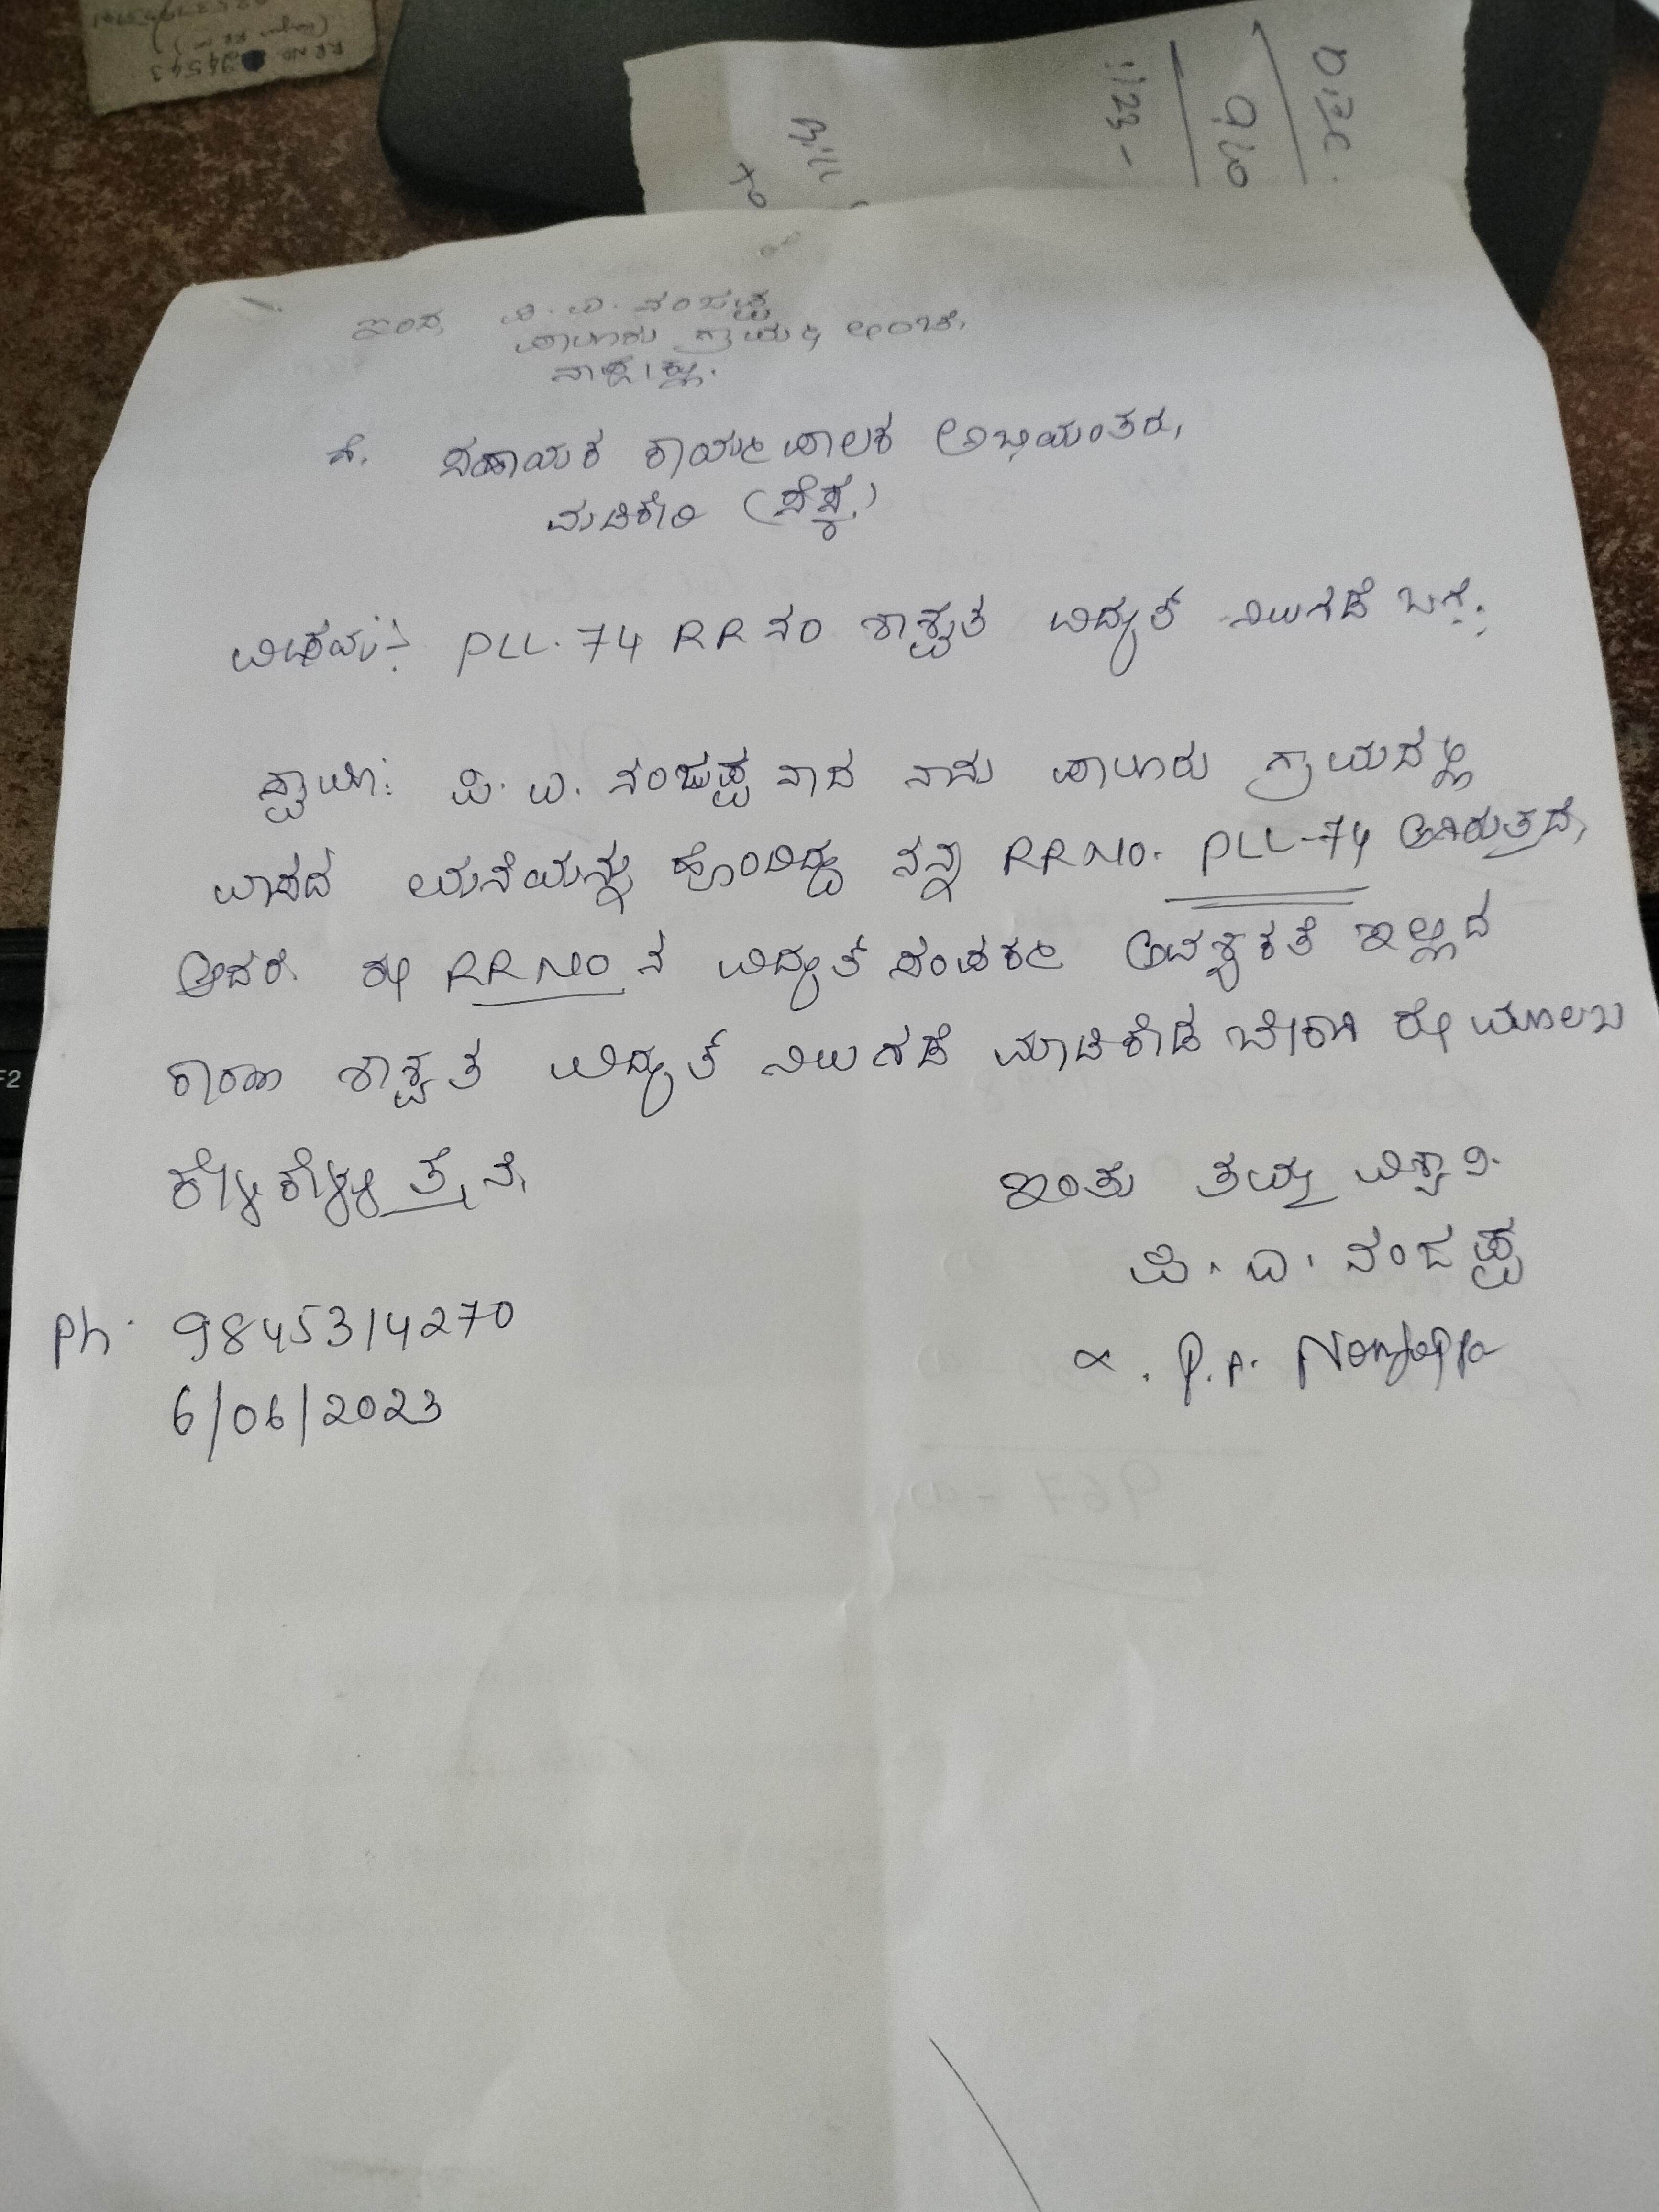 RR NO 24543
Bill
1123 -
ಇಂದ, ಪಿ. ಎ. ನಂಜಪ್ಪ
ಪಾಲೂರು ಗ್ರಾಮ & ಅಂಚೆ,
ನಾಪೋಕ್ಲು.
ಗೆ. ಸಹಾಯಕ ಕಾರ್ಯಪಾಲಕ ಅಭಿಯಂತರ,
ಮಡಿಕೇರಿ (ಸೆಸ್ಕ.)
ವಿಷಯ:- PLL. 74 RR ನಂ ಶಾಶ್ವತ ವಿದ್ಯುತ್ ನಿಲುಗಡೆ ಬಗ್ಗೆ:
ಸ್ವಾಮಿ: ಪಿ. ಎ. ನಂಜಪ್ಪ ನಾದ ನಾನು ಪಾಲೂರು ಗ್ರಾಮದಲ್ಲಿ
ವಾಸದ ಮನೆಯನ್ನು ಹೊಂದಿದ್ದು ನನ್ನ RR NO. PLL-74 ಆಗಿರುತ್ತದೆ,
ಆದರೆ ಈ RR NO ನ ವಿದ್ಯುತ್ ಸಂಪರ್ಕ ಅವಶ್ಯಕತೆ ಇಲ್ಲದ
ಕಾರಣ ಶಾಶ್ವತ ವಿದ್ಯುತ್ ನಿಲುಗಡೆ ಮಾಡಿಕೊಡ ಬೇಕಾಗಿ ಈ ಮೂಲಖ
ಕೇಳಿಕೊಳ್ಳುತ್ತೇನೆ,
ಇಂತು ತಮ್ಮ ವಿಶ್ವಾಸಿ.
ಪಿ. ಎ. ನಂಜಪ್ಪ
P.A. Nanjappa
Ph. 9845314270
6/06/2023